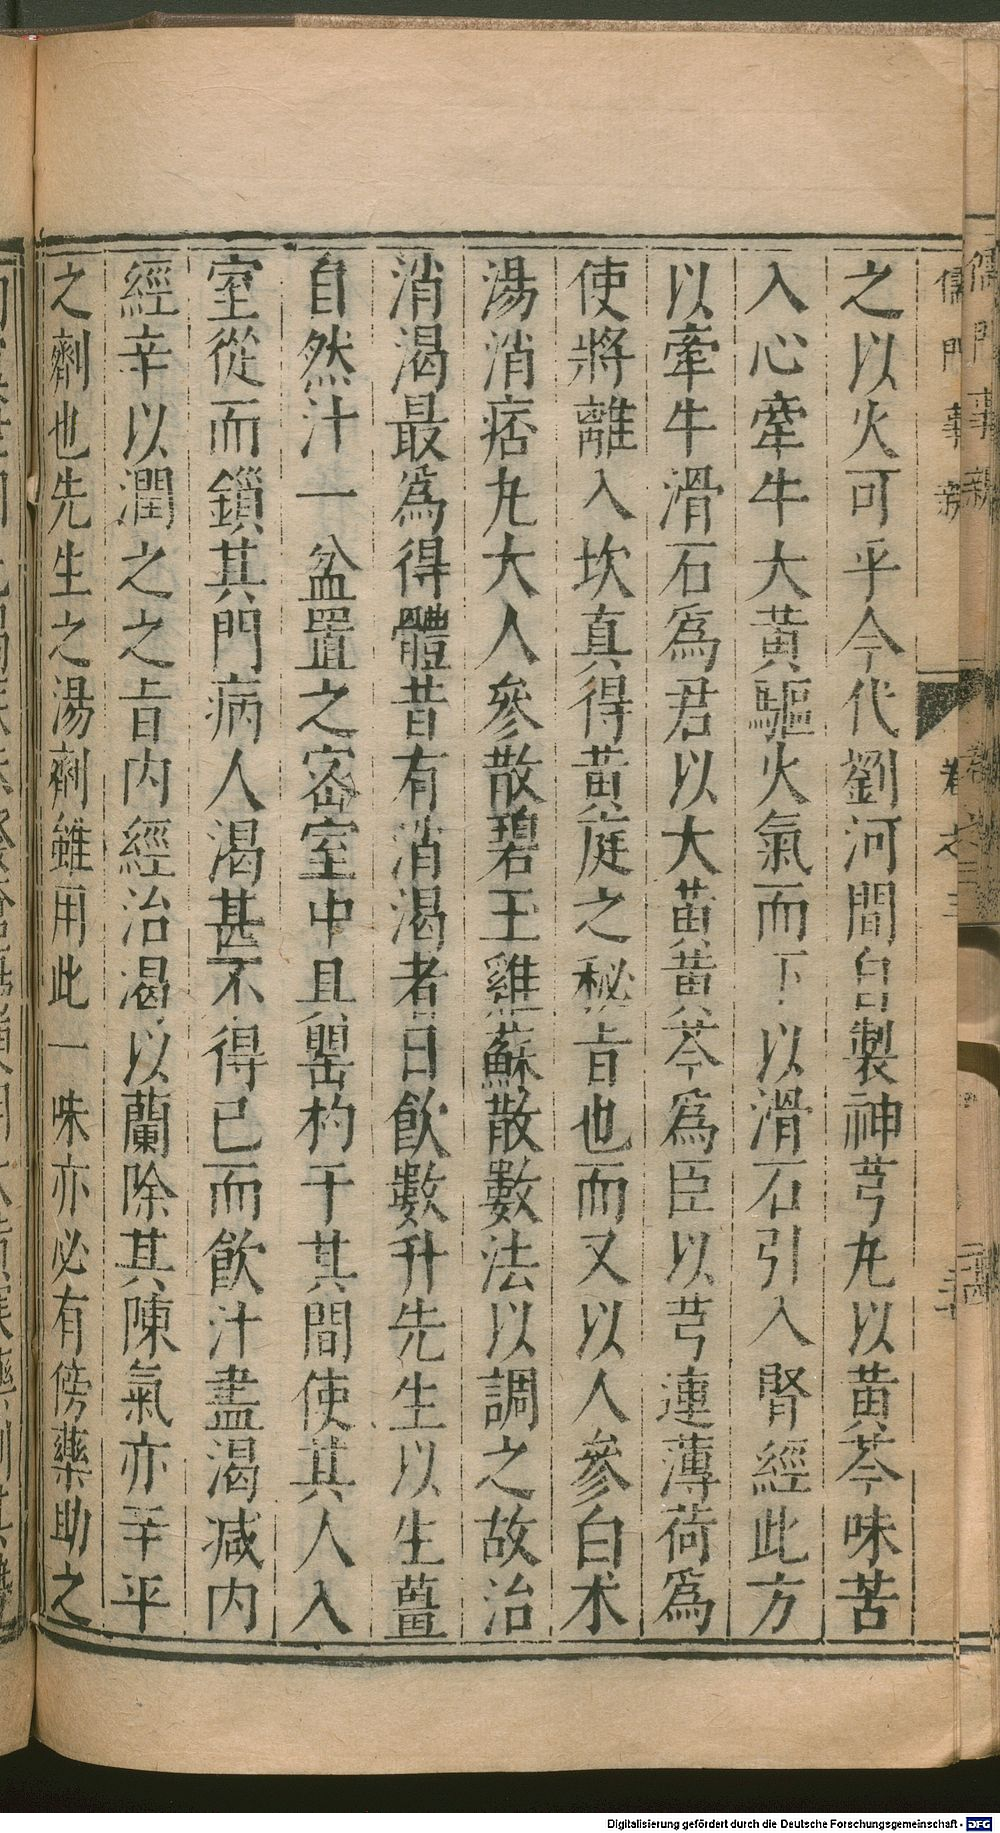 儒門事親
卷之三
之以火可乎今代劉河間自製神芎丸以黃芩味苦
入心牽牛大黃驅火氣而下以滑石引入腎經此方
以牽牛滑石爲君以大黃黃芩爲臣以芎連薄荷爲
使將離入坎真得黃庭之秘旨也而又以人參白术
湯消痞丸大人參散碧玉雞蘇散數法以調之故治
消渴最爲得體昔有消渴者日飲數升先生以生薑
自然汁一盆置之密室中具罌杓于其間使其人入
室從而鎖其門病人渴甚不得已而飲汁盡渴减內
經辛以潤之之旨內經治渴以蘭除其陳氣亦辛平
之劑也先生之湯劑雖用此一味亦必有傍藥助之
Digitalisierung gefördert durch die Deutsche Forschungsgemeinschaft - DFG